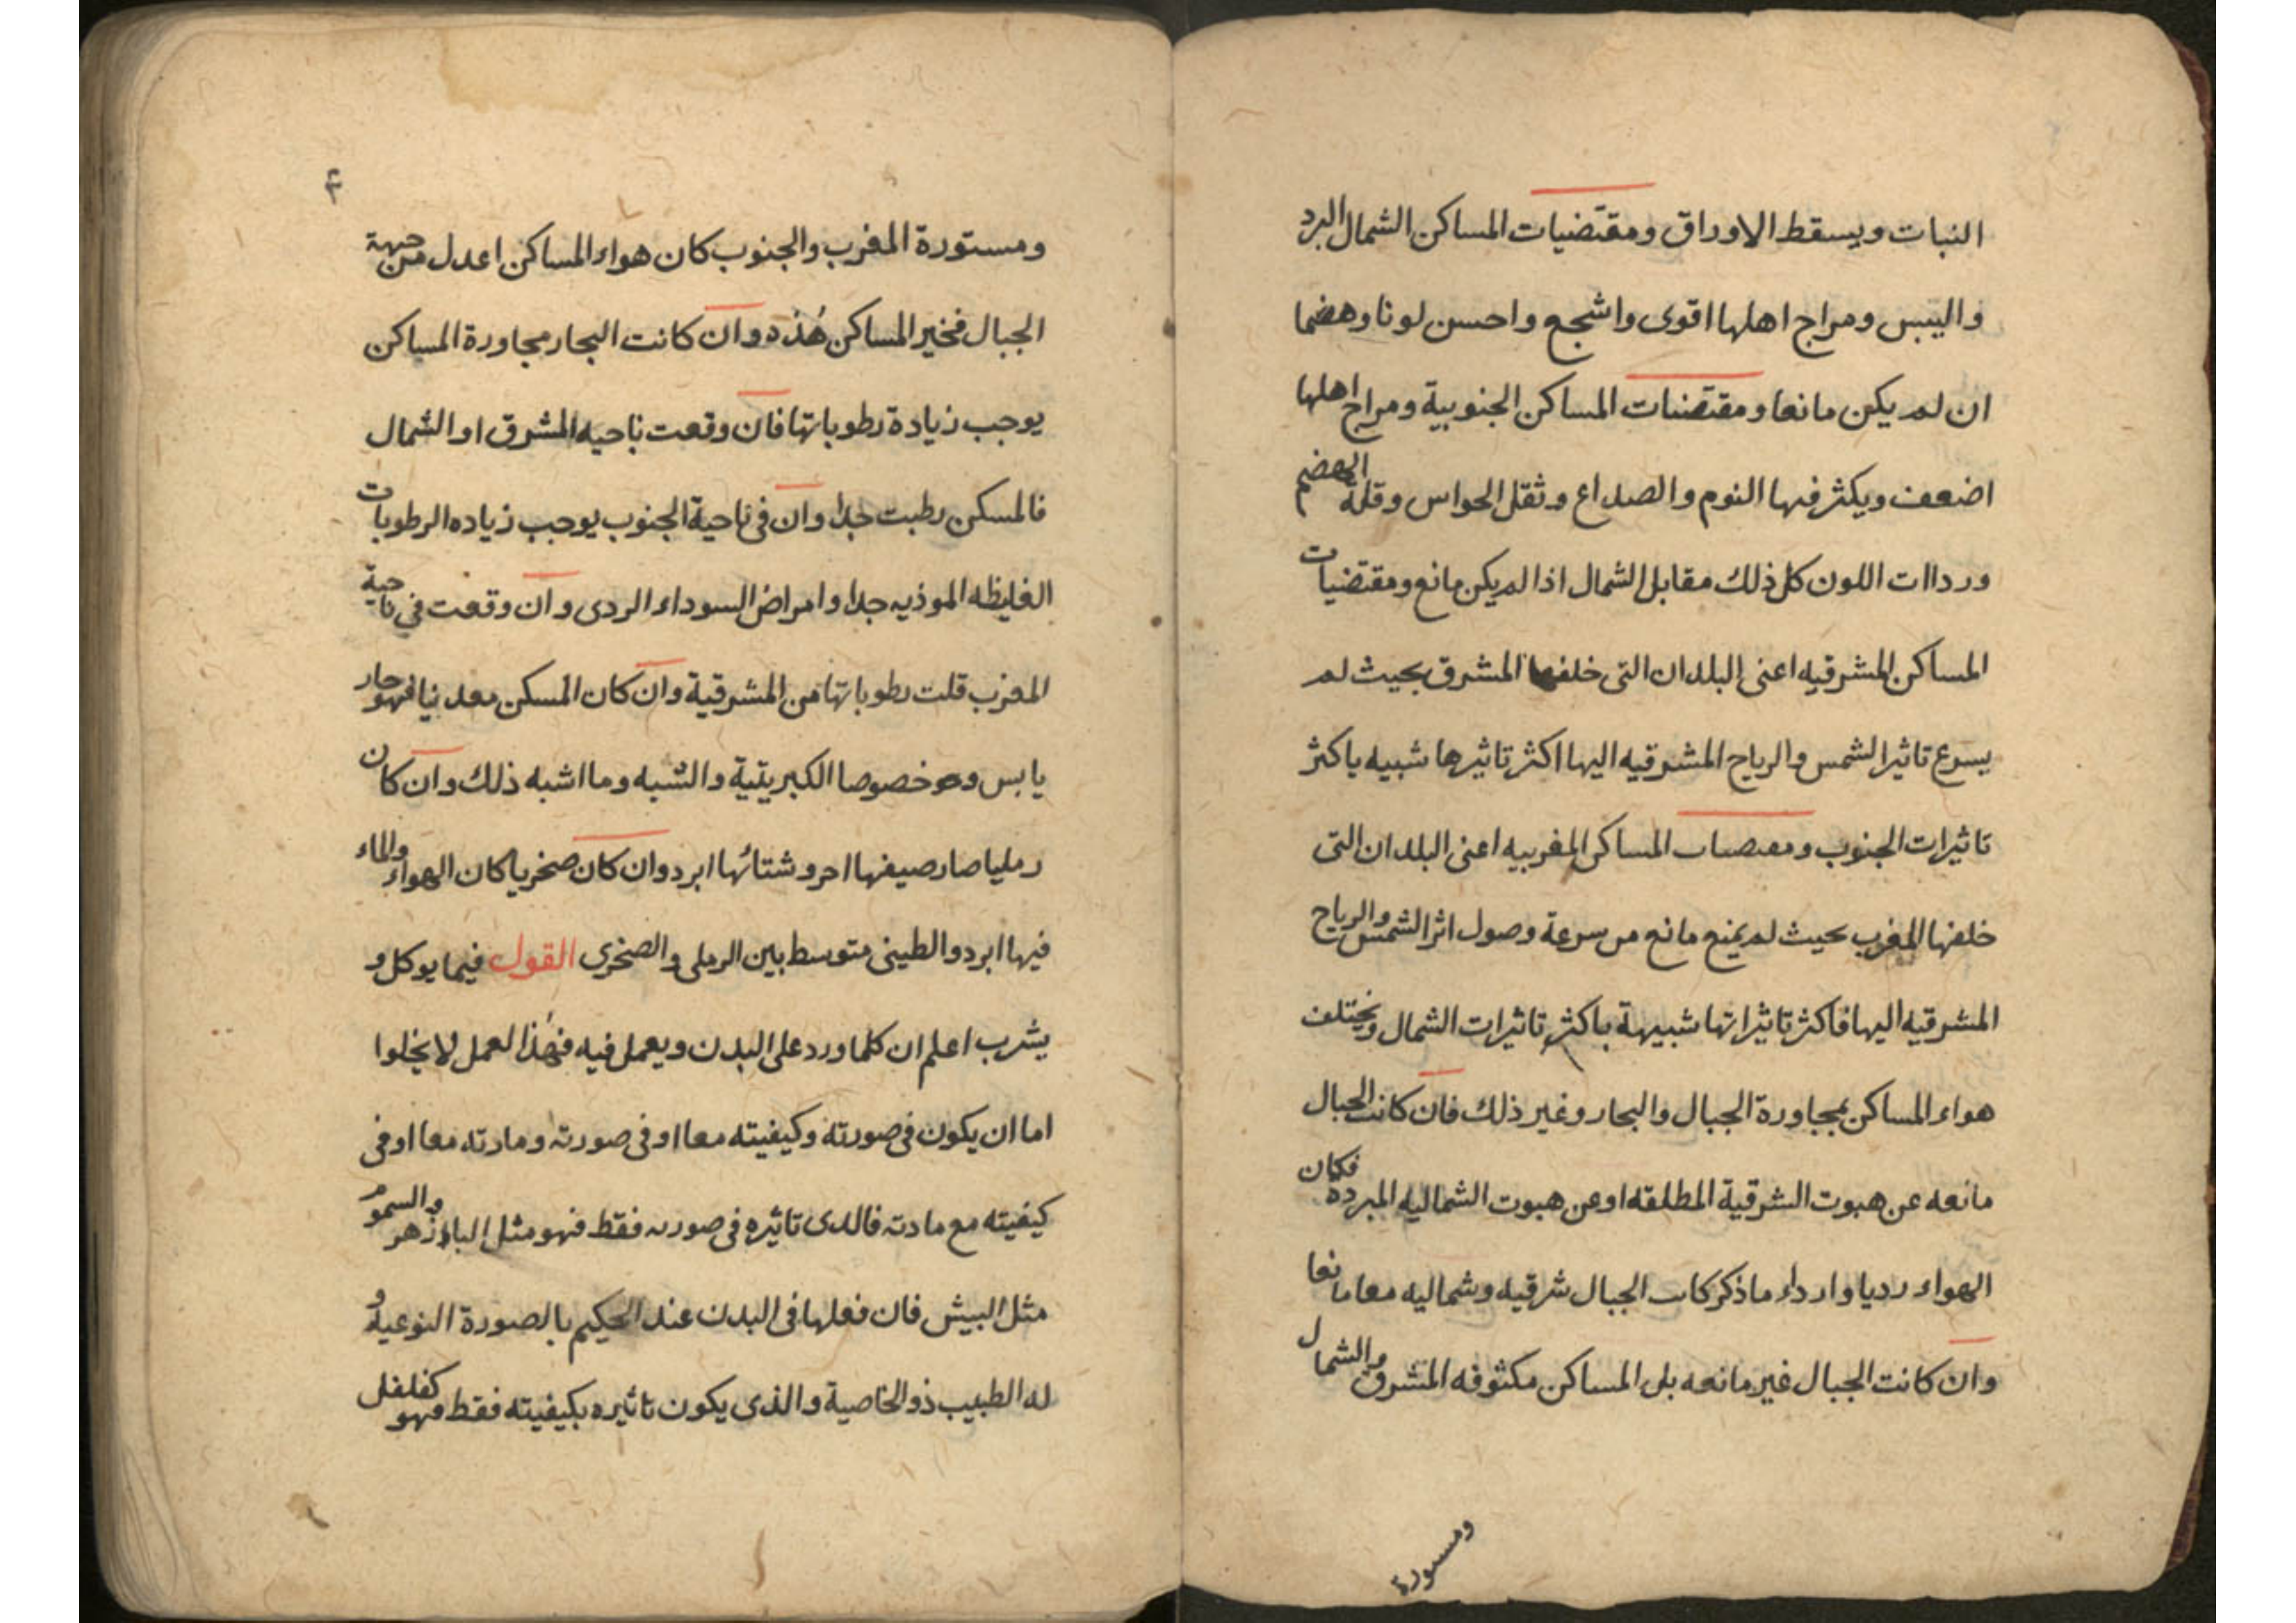 النبات ويسقط الاوراق ومقتضيات المساكن الشمال البرد
واليبس ومراج اهلها اقوى واشجع واحسن لونا وهضما
ان لم يكن مانعا ومقتضيات المساكن الجنوبية ومراج اهلها
اضعف ويكثر فيها النوم والصداع وثقل الحواس وقلة الهضم
ورداات اللون كل ذلك مقابل الشمال اذا لم يكن مانع ومقتضيات
المساكن المشرقيه اعنى البلدان التى خلفها المشرق بحيث لم
يسرع تاثير الشمس والرياح المشرقيه اليها اكثر تاثيرها شبيه باكثر
تاثيرات الجنوب ومعصىاى المساكن المغربيه اعنى البلدان التى
خلفها المغرب بحيث لم يمنع مانع من سرعة وصول اثر الشمس والرياح
المشرقيه اليها فاكثر تاثيراتها شبيهة باكثر تاثيرات الشمال ويختلف
هواء المساكن بمجاورة الجبال والبحار وغير ذلك فان كانت الجبال
مانعه عن هبوت الشرقية المطلقه او عن هبوت الشماليه المبردة فكان
الهواء رديا وارداء ما ذكر كانت الجبال شرقيه وشماليه معا مانعا
وان كانت الجبال غير مانعه بل المساكن مكثوفه المشرق والشمال
ومسورة
۴
ومستورة المغرب والجنوب كان هواء المساكن اعدل من جهة
الجبال فخير المساكن هذه وان كانت البحار مجاورة المساكن
يوجب زيادة رطوباتها فان وقعت ناحيه المشرق او الشمال
فالمسكن رطبت جدا وان فى ناحية الجنوب يوجب زياده الرطوبات
الغليظه الموذيه جدا وامراض السوداء الردى وان وقعت في ناحية
المغرب قلت رطوباتها من المشرقية وان كان المسكن معدنيا فهو حار
يابس وهو خصوصا الكبريتية والشبه وما اشبه ذلك وان كان
رمليا صار صيفها احر وشتائها ابرد وان كان صخريا كان الهواء والماء
فيها ابرد والطينى متوسط بين الرملى والصخرى القول فيما يوكل و
يشرب اعلم ان كلما ورد على البدن ويعمل فيه فهذا العمل لا يخلوا
اما ان يكون فى صورته وكيفيته معا او فى صورته ومادته معا او فى
كيفيته مع مادته فالدى تاثيره فى صورىه فقط فهو مثل البادزهر والسموم
مثل البيش فان فعلها فى البدن عند الحكيم بالصورة النوعية و
له الطبيب ذو الخاصية والذى يكون تاثيره بكيفيته فقط فهو كفلفل